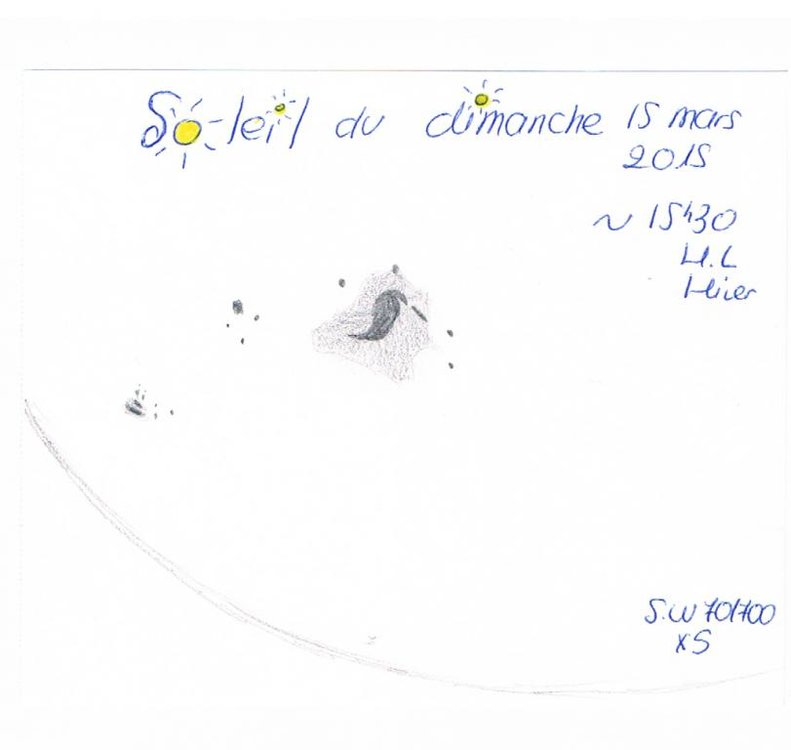 Soleil du dimanche 15 mars
2015
~ 15h30
H.L
Hiver
S.W 70/700
x5